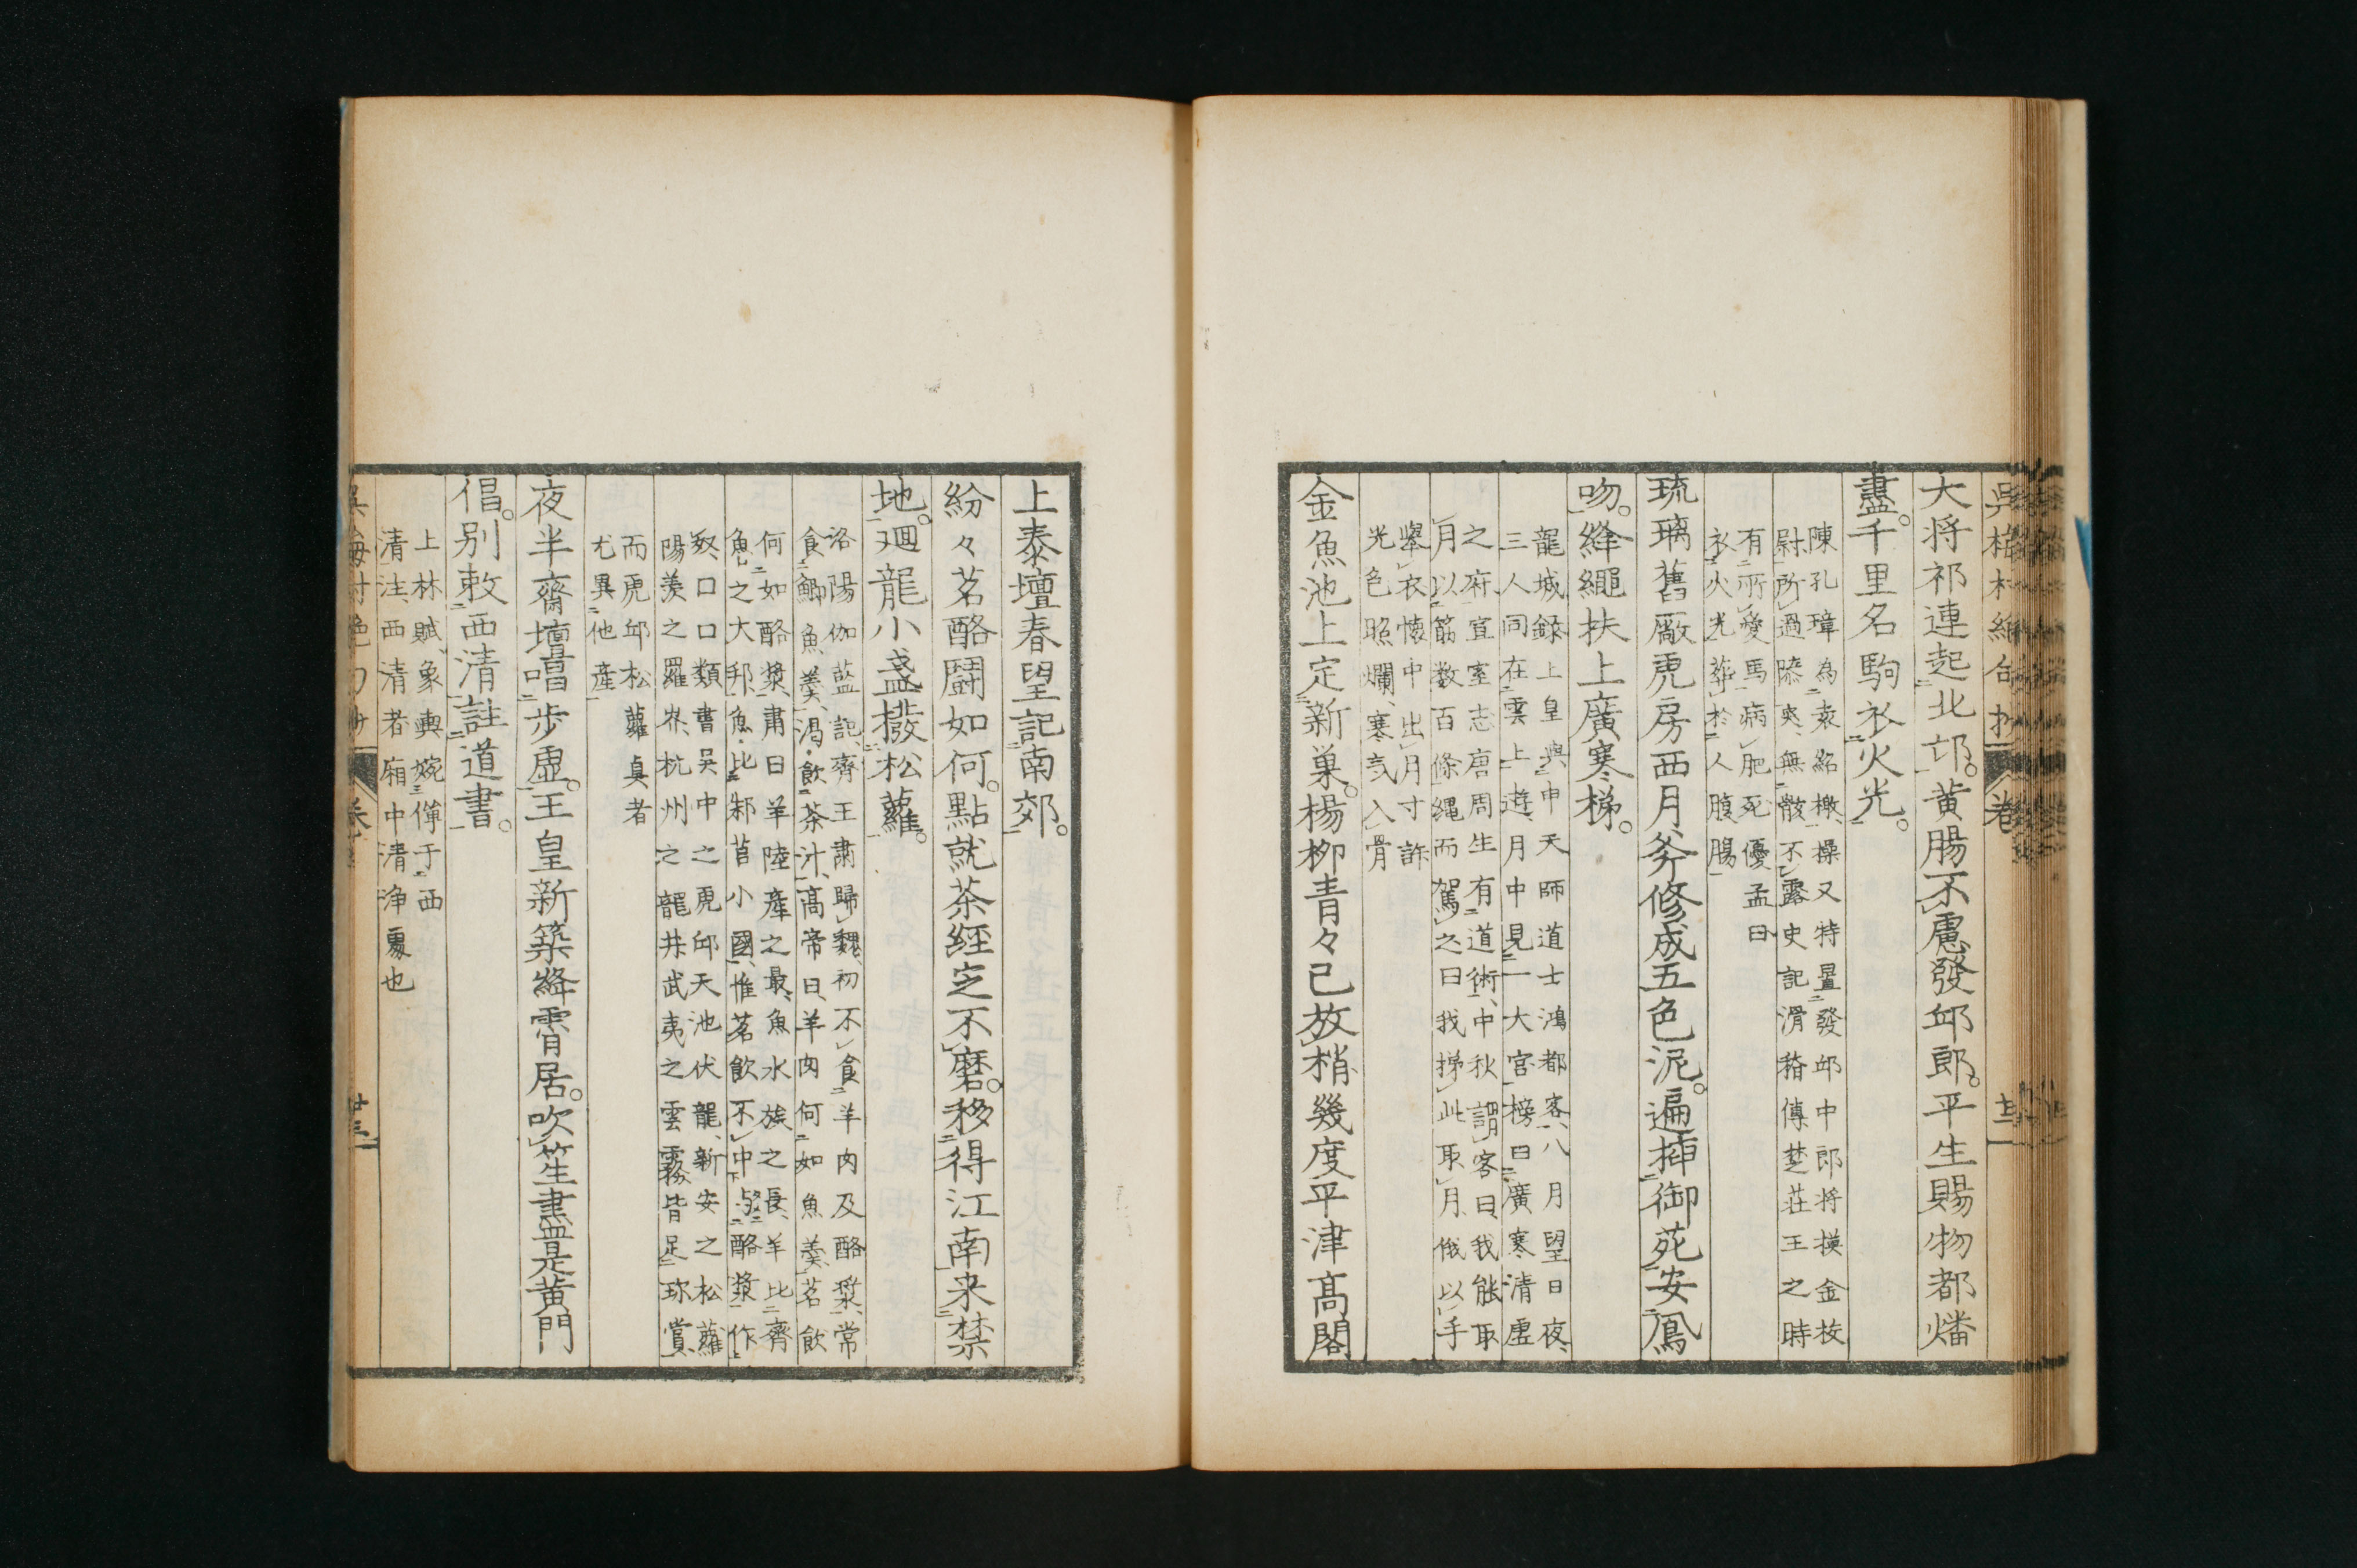 大将祁連起北邙。黄腸不慮發邱郎。平生賜物都燔
盡。千里名駒衣火光。
陳孔璋為袁紹檄、操又特置發邱中郎将摸金校
尉、所過隳突、無骸不露史記滑稽傳楚莊王之時
有所愛馬病肥死優孟曰
衣火光葬於人腹腸
琉璃舊厰虎房西月斧修成五色泥。遍挿御苑安鳳
吻。絳繩扶上廣寒梯。
龍城錄上皇與申天師道士鴻都客、八月望日夜、
三人同在雲上遊、月中見一大宫榜曰廣寒清虛
之府宣室志唐周生有道術、中秋謂客曰、我能取
月以筯数百條繩而駕之曰我挮此取月、俄以手
擧衣懐中出月寸許
光色照爛、寒気入骨
金魚池上定新巢。楊柳青々已放梢幾度平津髙閣
上泰壇春望記南郊。
紛々茗酪鬪如何。點就茶経定不磨。移得江南来禁
地。廻龍小盞撥松蘿。
洛陽伽藍記、齊王肅歸魏、初不食羊肉及酪漿、常
食鯽魚羹、渇飲茶汁、髙帝曰、羊肉何如魚羹、茗飲
何如酪漿、肅曰羊陸産之最、魚水族之長、羊比齊
魚之大邦、魚比邾莒小國、惟茗飲不中與酪漿作
奴口口類書吳中之虎邱天池伏龍、新安之松蘿
陽羨之羅岕、杭州之龍井武夷之雲霧皆足珎賞、
而虎邱松蘿真者
尤異他産
夜半齋壇唱步虛。王皇新築絳霄居。吹笙盡是黄門
倡。別敕西清註道書。
上林賦、象輿婉僤于西
清注、西清者廂中清浄處也